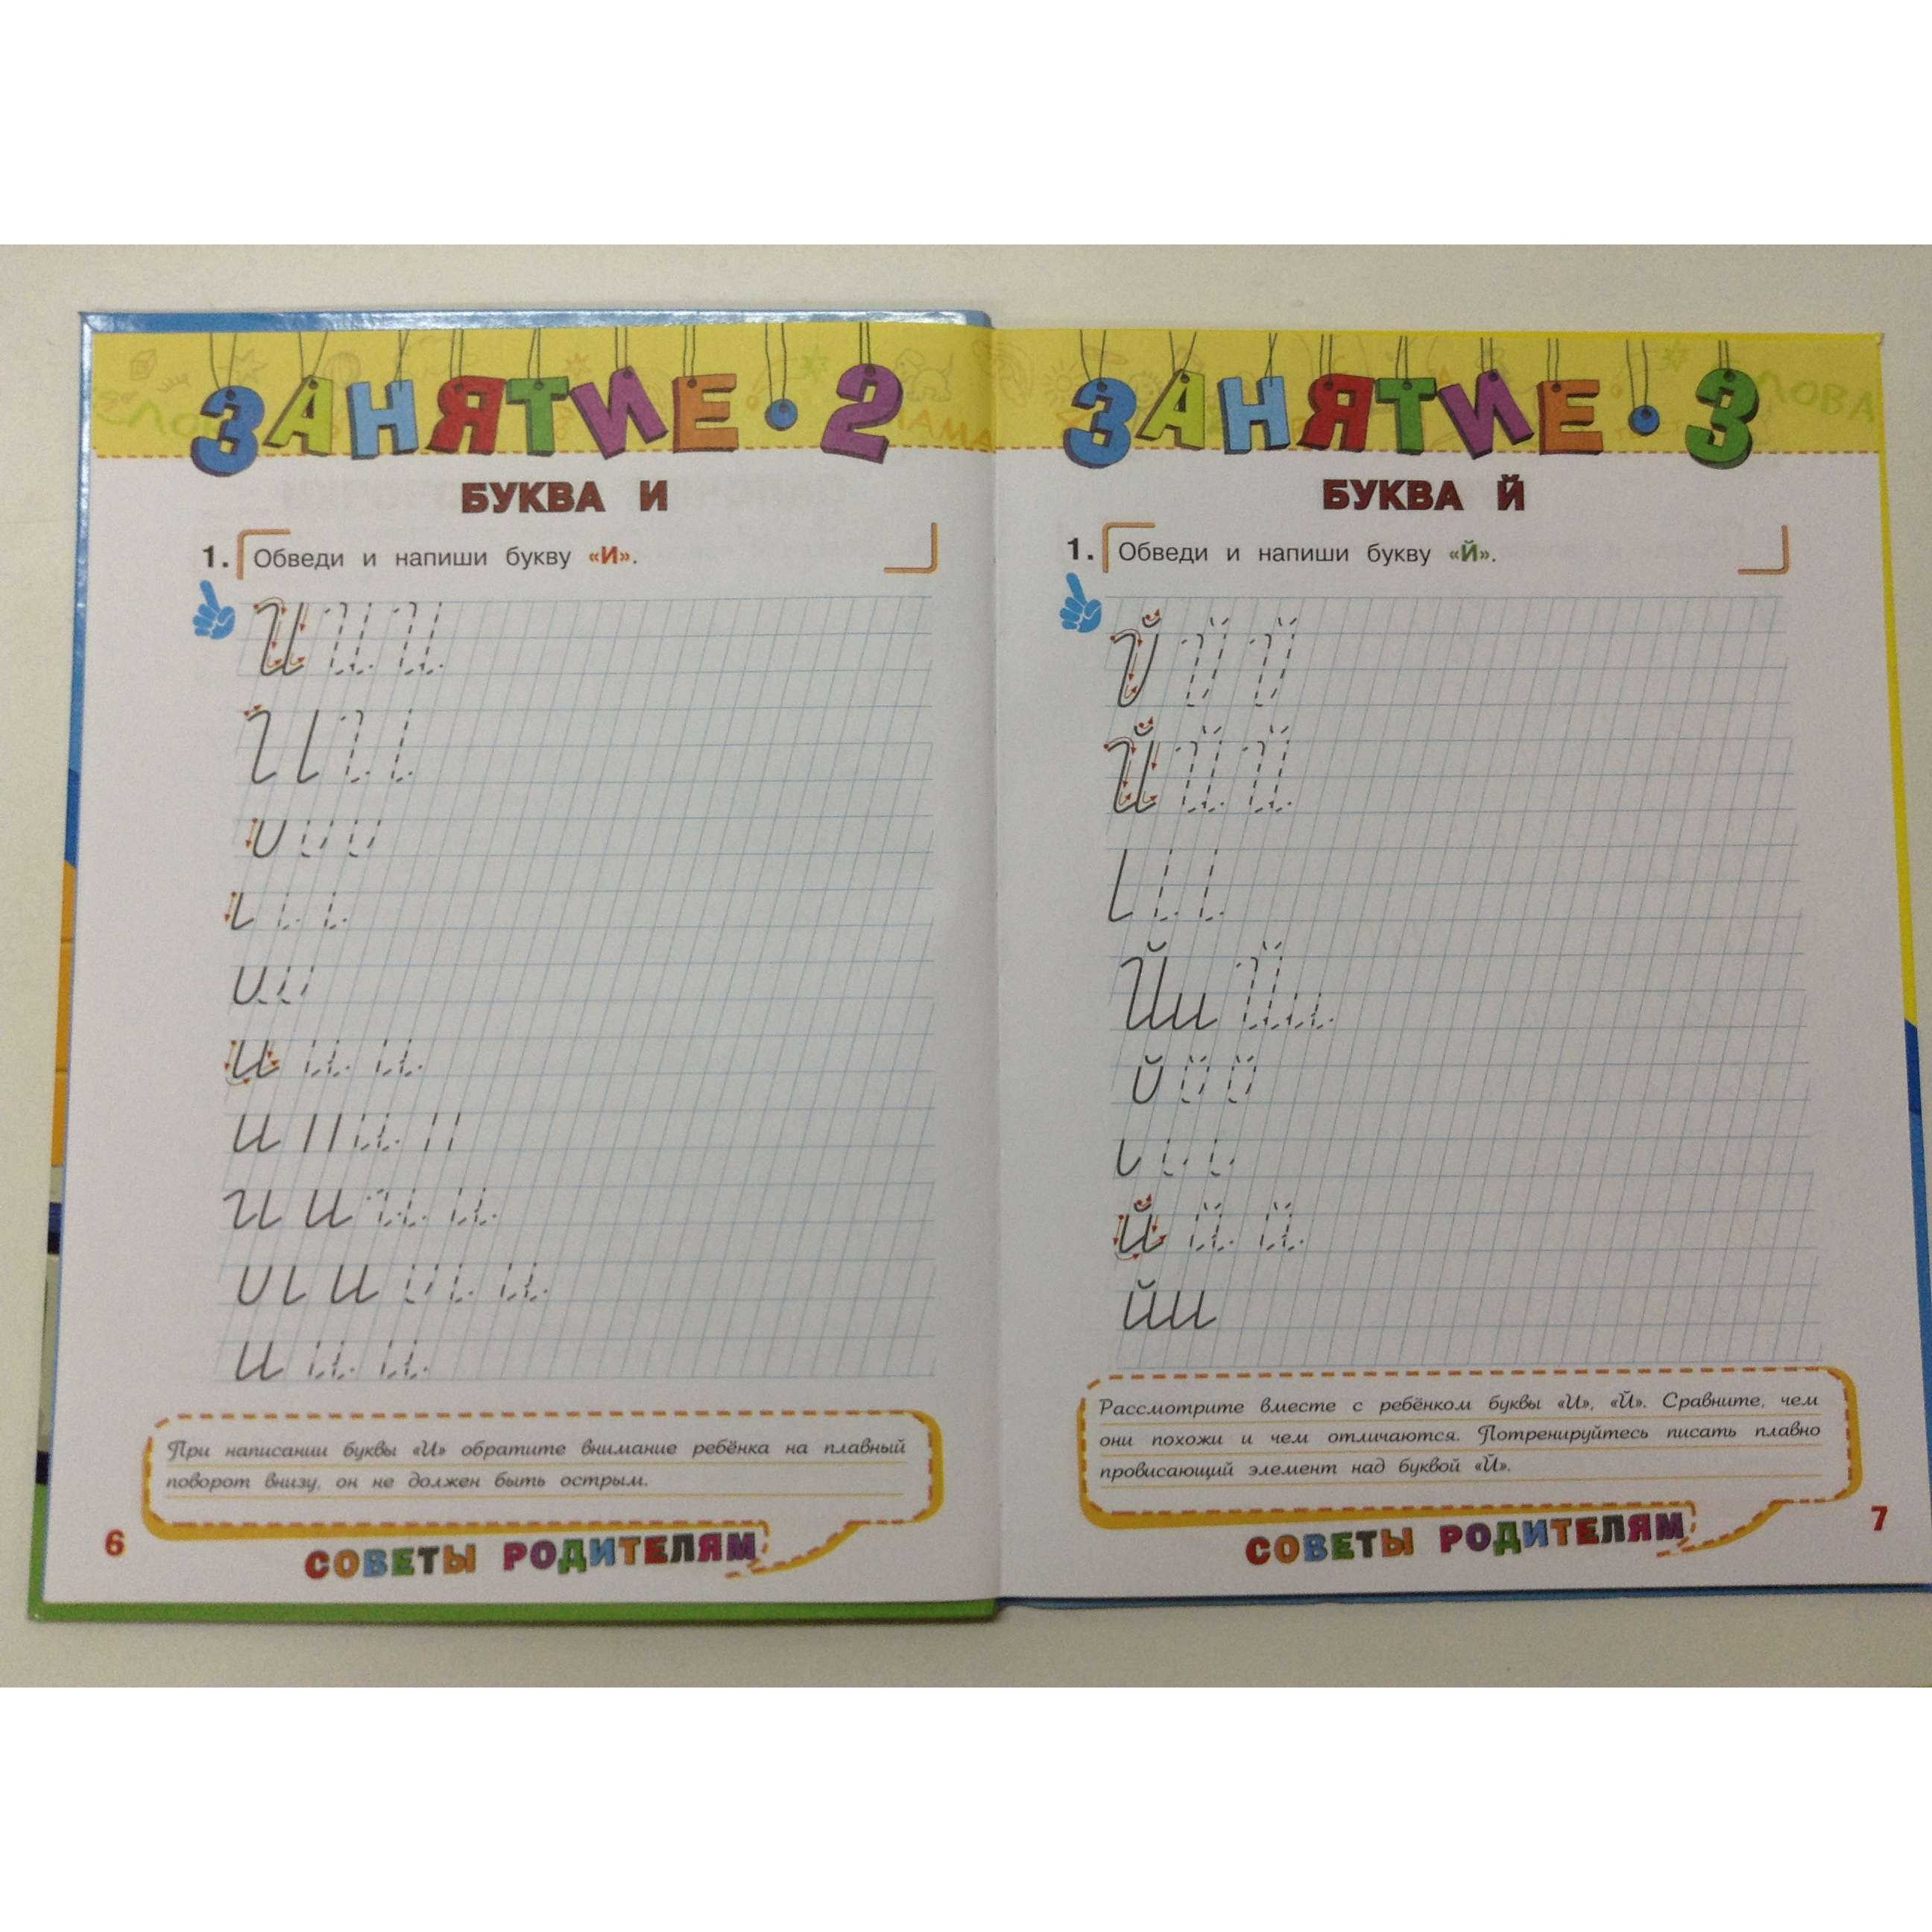 ЗАНЯТИЕ • 2
БУКВА И
1. Обведи и напиши букву «И».
И И И
И И
и
и и и
и и и
и и и и
и и и
При написании буквы «И» обратите внимание ребёнка на плавный
поворот внизу, он не должен быть острым.
6
СОВЕТЫ РОДИТЕЛЯМ
ЗАНЯТИЕ • 3
БУКВА Й
1. Обведи и напиши букву «Й».
Й Й Й
Йи Йи
й й й
йи
Рассмотрите вместе с ребёнком буквы «И», «Й». Сравните, чем
они похожи и чем отличаются. Потренируйтесь писать плавно
провисающий элемент над буквой «Й».
СОВЕТЫ РОДИТЕЛЯМ
7